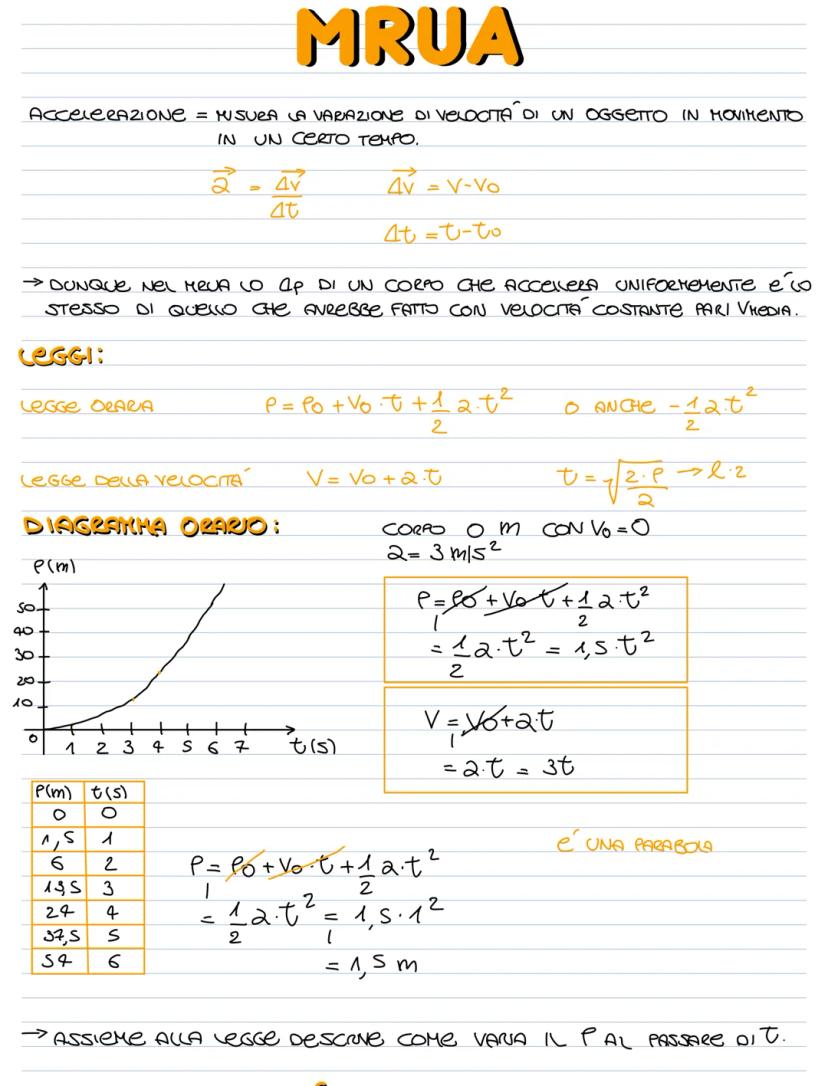 MRUA
ACCELERAZIONE = MISURA LA VARIAZIONE DI VELOCITA' DI UN OGGETTO IN MOVIMENTO
IN UN CERTO TEMPO.
a⃗ = Δv⃗/Δt   Δv⃗ = V-V₀
Δt = t-t₀
→ DUNQUE NEL MRUA LO Δp DI UN CORPO CHE ACCELERA UNIFORMEMENTE E' LO
STESSO DI QUELLO CHE AVREBBE FATTO CON VELOCITA' COSTANTE PARI VMEDIA.
LEGGI:
LEGGE ORARIA   P = P₀ + V₀ · t + 1/2 a · t²   O ANCHE - 1/2 a · t²
LEGGE DELLA VELOCITA'   V = V₀ + a · t   t = √(2 · P / a) → l · 2
DIAGRAMMA ORARIO:   CORPO 0 m CON V₀ = 0
a = 3 m/s²
P(m)
50
40
30
20
10
0 1 2 3 4 5 6 7 t(s)
P = P₀ + V₀ t + 1/2 a · t²
= 1/2 a · t² = 1,5 · t²
V = V₀ + a t
= a · t = 3t
P(m) t(s)
0 0
1,5 1
6 2
13,5 3
24 4
37,5 5
54 6
E' UNA PARABOLA
P = P₀ + V₀ · t + 1/2 a · t²
= 1/2 a · t² = 1,5 · 1²
= 1,5 m
→ ASSIEME ALLA LEGGE DESCRIVE COME VARIA IL P AL PASSARE DI t.